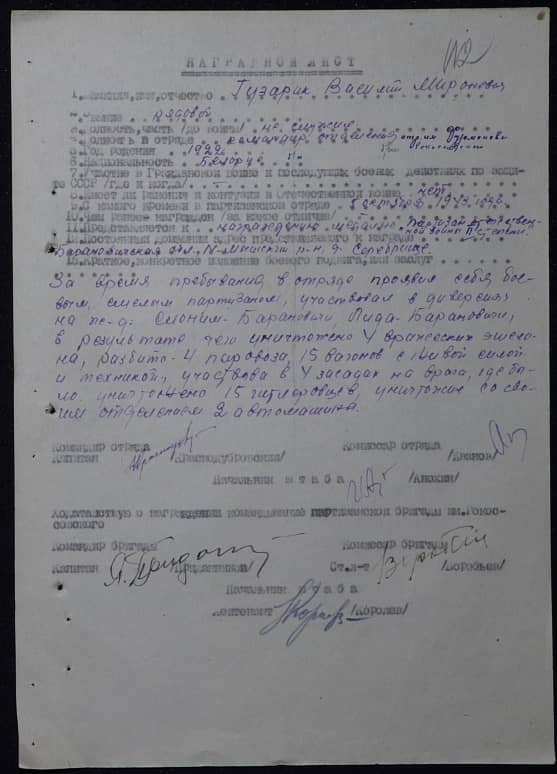 112
НАГРАДНОЙ ЛИСТ
1. Фамилия, имя, отчество Гузарик Василий Миронович
2. Звание рядовой
3. Должность, часть /до войны/ не служил
4. Должность в отряде командир отделения отряд
5. Год рождения 1922
6. Национальность Белорус
7. Участие в Гражданской войне и последующих боевых действиях по защи-
те СССР /где и когда/
8. Имеет ли ранения и контузии в Отечественной войне нет
9. С какого времени в партизанском отряде с октября 1943
10. Чем ранее награжден /за какое отличие/
11. Представляется к награждению медалью Партизан Отечествен-
ной войны II степени.
12. Постоянный домашний адрес представляемого к награде
Барановичская обл, р-н д.
13. Краткое, конкретное изложение боевого подвига, или заслуг
За время пребывания в отряде проявил себя бое-
вым, смелым партизаном, участвовал в диверсиях
на ж-д. Слоним-Барановичи, Лида-Барановичи,
в результате чего уничтожено 4 вражеских эшело-
на, разбито 4 паровоза, 15 вагонов с живой силой
и техникой, участвовал в 4 засадах на врага, где бы-
ло уничтожено 15 гитлеровцев, уничтожил со сво-
им отделением 2 автомашины.
Командир отряда Комиссар отряда
Капитан /Краснодубровский/ /Иванов/
Начальник штаба /Анохин/
Ходатайствую о награждении командование партизанской бригады им. Рокос-
совского
Командир бригады Комиссар бригады
Капитан Ст. л-т /Воробьев/
Начальник штаба
Лейтенант /Королев/